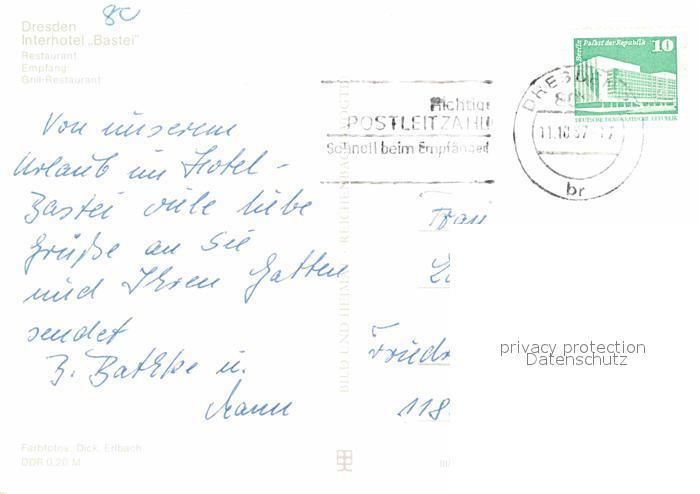 80
Dresden
Interhotel „Bastei"
Restaurant
Empfang
Grill-Restaurant
Berlin Palast der Republik 10
DEUTSCHE DEMOKRATISCHE REPUBLIK
DRESDEN
80
11.10.87-17
br
Richtige
POSTLEITZAHL
Schnell beim Empfänger
Von unserem
Urlaub im Hotel-
Bastei viele liebe
Grüße an Sie
und Ihren Gatten
sendet
B. Bathke u.
Mann
Frau
Friedr
118
BILD UND HEIMAT REICHENBACH
Farbfotos: Dick, Erlbach
DDR 0,20 M
III/
privacy protection
Datenschutz